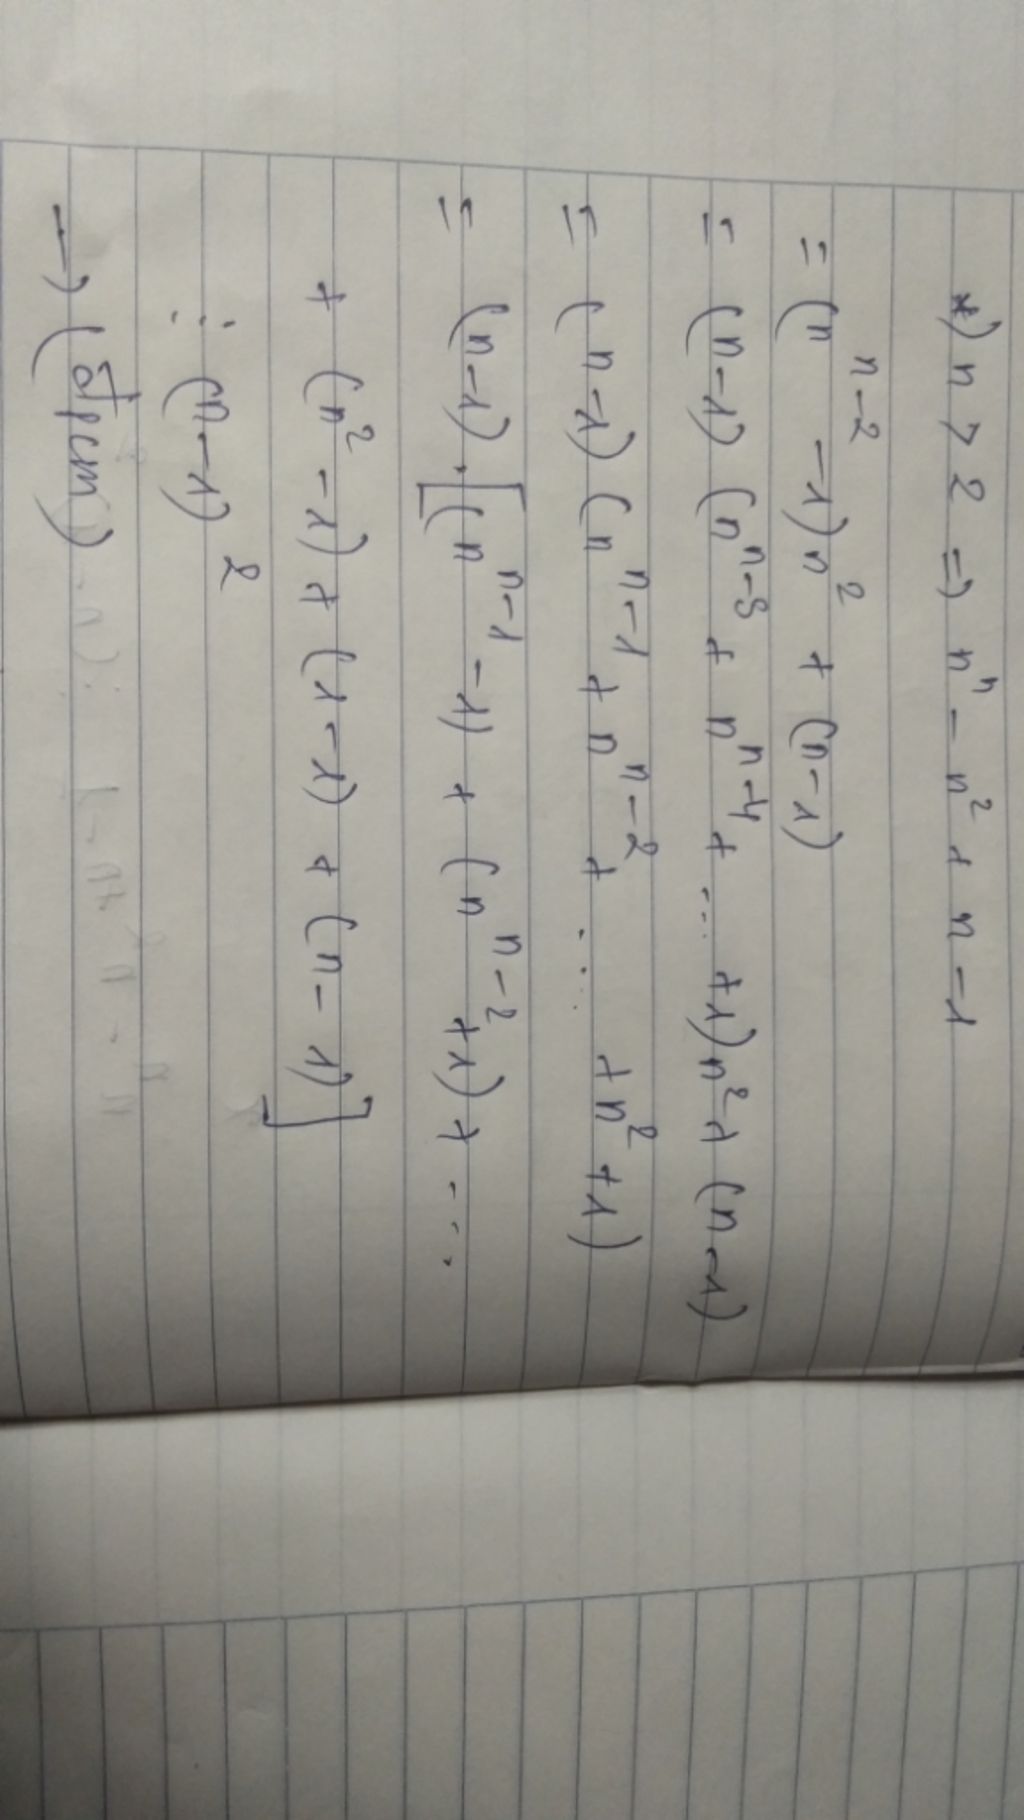 *) n > 2 => nⁿ - n² + n - 1
= (nⁿ⁻² - 1) n² + (n - 1)
= (n - 1) (nⁿ⁻³ + nⁿ⁻⁴ + ... + 1) n² + (n - 1)
= (n - 1) (nⁿ⁻¹ + nⁿ⁻² + .... + n² + 1)
= (n - 1) . [(nⁿ⁻¹ - 1) + (nⁿ⁻² + 1) + ...
+ (n² - 1) + (1 - 1) + (n - 1)]
⋮ (n - 1)²
→ (đpcm)